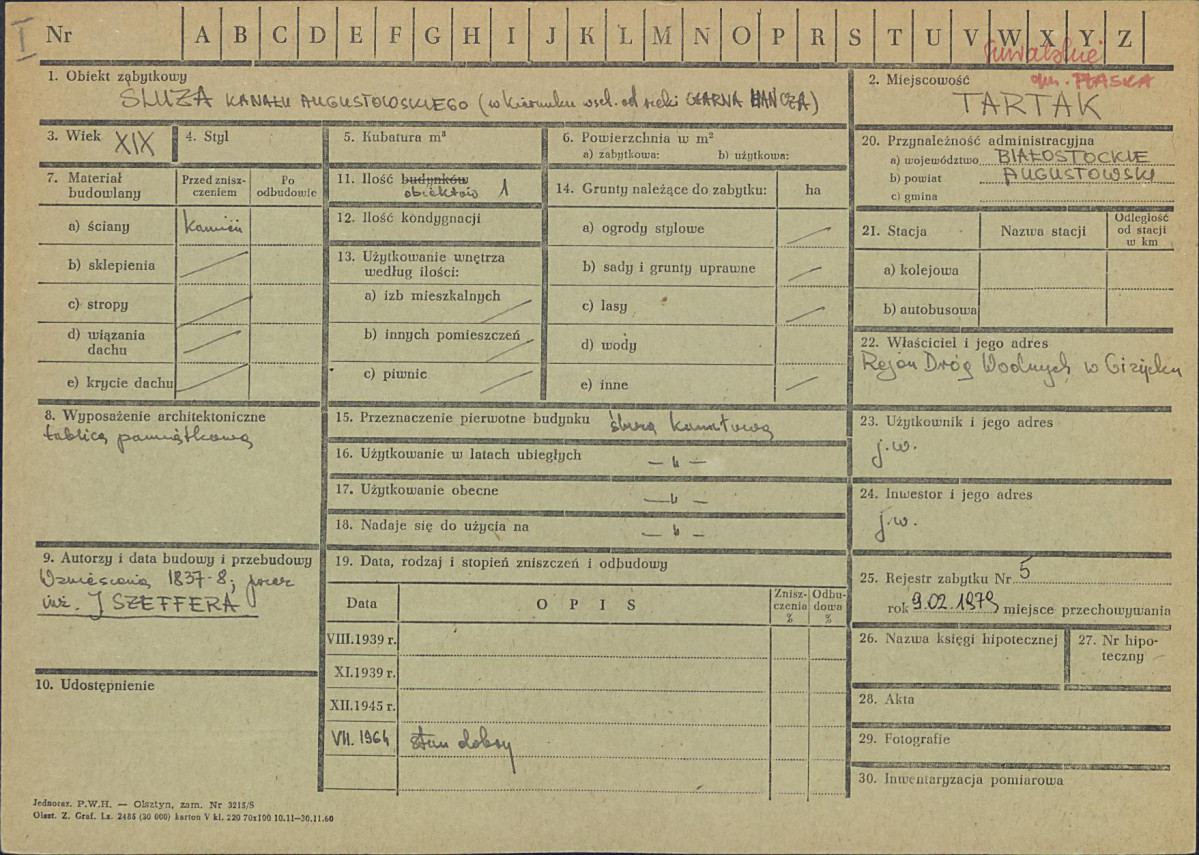 I
Nr A B C D E F G H I J K L M N O P R S T U V W X Y Z
Suwalskie
1. Obiekt zabytkowy
ŚLUZA KANAŁU AUGUSTOWSKIEGO (w kierunku wsch. od rzeki CZARNA HAŃCZA)
2. Miejscowość
gm. PŁASKA
TARTAK
3. Wiek XIX
4. Styl
5. Kubatura m³
6. Powierzchnia w m²
a) zabytkowa: b) użytkowa:
7. Materiał budowlany
Przed znisz-
czeniem
Po
odbudowie
a) ściany kamień
b) sklepienia
c) stropy
d) wiązania
dachu
e) krycie dachu
8. Wyposażenie architektoniczne
tablica pamiątkowa
9. Autorzy i data budowy i przebudowy
Wzniesiona 1837-8; przez
inż. J SZEFFERA
10. Udostępnienie
11. Ilość budynków
obiektów 1
12. Ilość kondygnacji
13. Użytkowanie wnętrza
według ilości:
a) izb mieszkalnych
b) innych pomieszczeń
c) piwnic
14. Grunty należące do zabytku: ha
a) ogrody stylowe
b) sady i grunty uprawne
c) lasy
d) wody
e) inne
15. Przeznaczenie pierwotne budynku śluza kanałowa
16. Użytkowanie w latach ubiegłych — " —
17. Użytkowanie obecne — " —
18. Nadaje się do użycia na — " —
19. Data, rodzaj i stopień zniszczeń i odbudowy
Data OPIS
Znisz-
czenia
%
Odbu-
dowa
%
VIII.1939 r.
XI.1939 r.
XII.1945 r.
VII. 1964 stan dobry
20. Przynależność administracyjna
a) województwo BIAŁOSTOCKIE
b) powiat AUGUSTOWSKI
c) gmina
21. Stacja Nazwa stacji
Odległość
od stacji
w km
a) kolejowa
b) autobusowa
22. Właściciel i jego adres
Rejon Dróg Wodnych w Giżycku
23. Użytkownik i jego adres
j.w.
24. Inwestor i jego adres
j.w.
25. Rejestr zabytku Nr 5
rok 9.02.1979 miejsce przechowywania
26. Nazwa księgi hipotecznej
27. Nr hipo-
teczny
28. Akta
29. Fotografie
30. Inwentaryzacja pomiarowa
Jednoraz. P.W.H. — Olsztyn, zam. Nr 3215/S
Olszt. Z. Graf. Lz. 2485 (30 000) karton V kl. 220 70x100 10.11—30.11.60